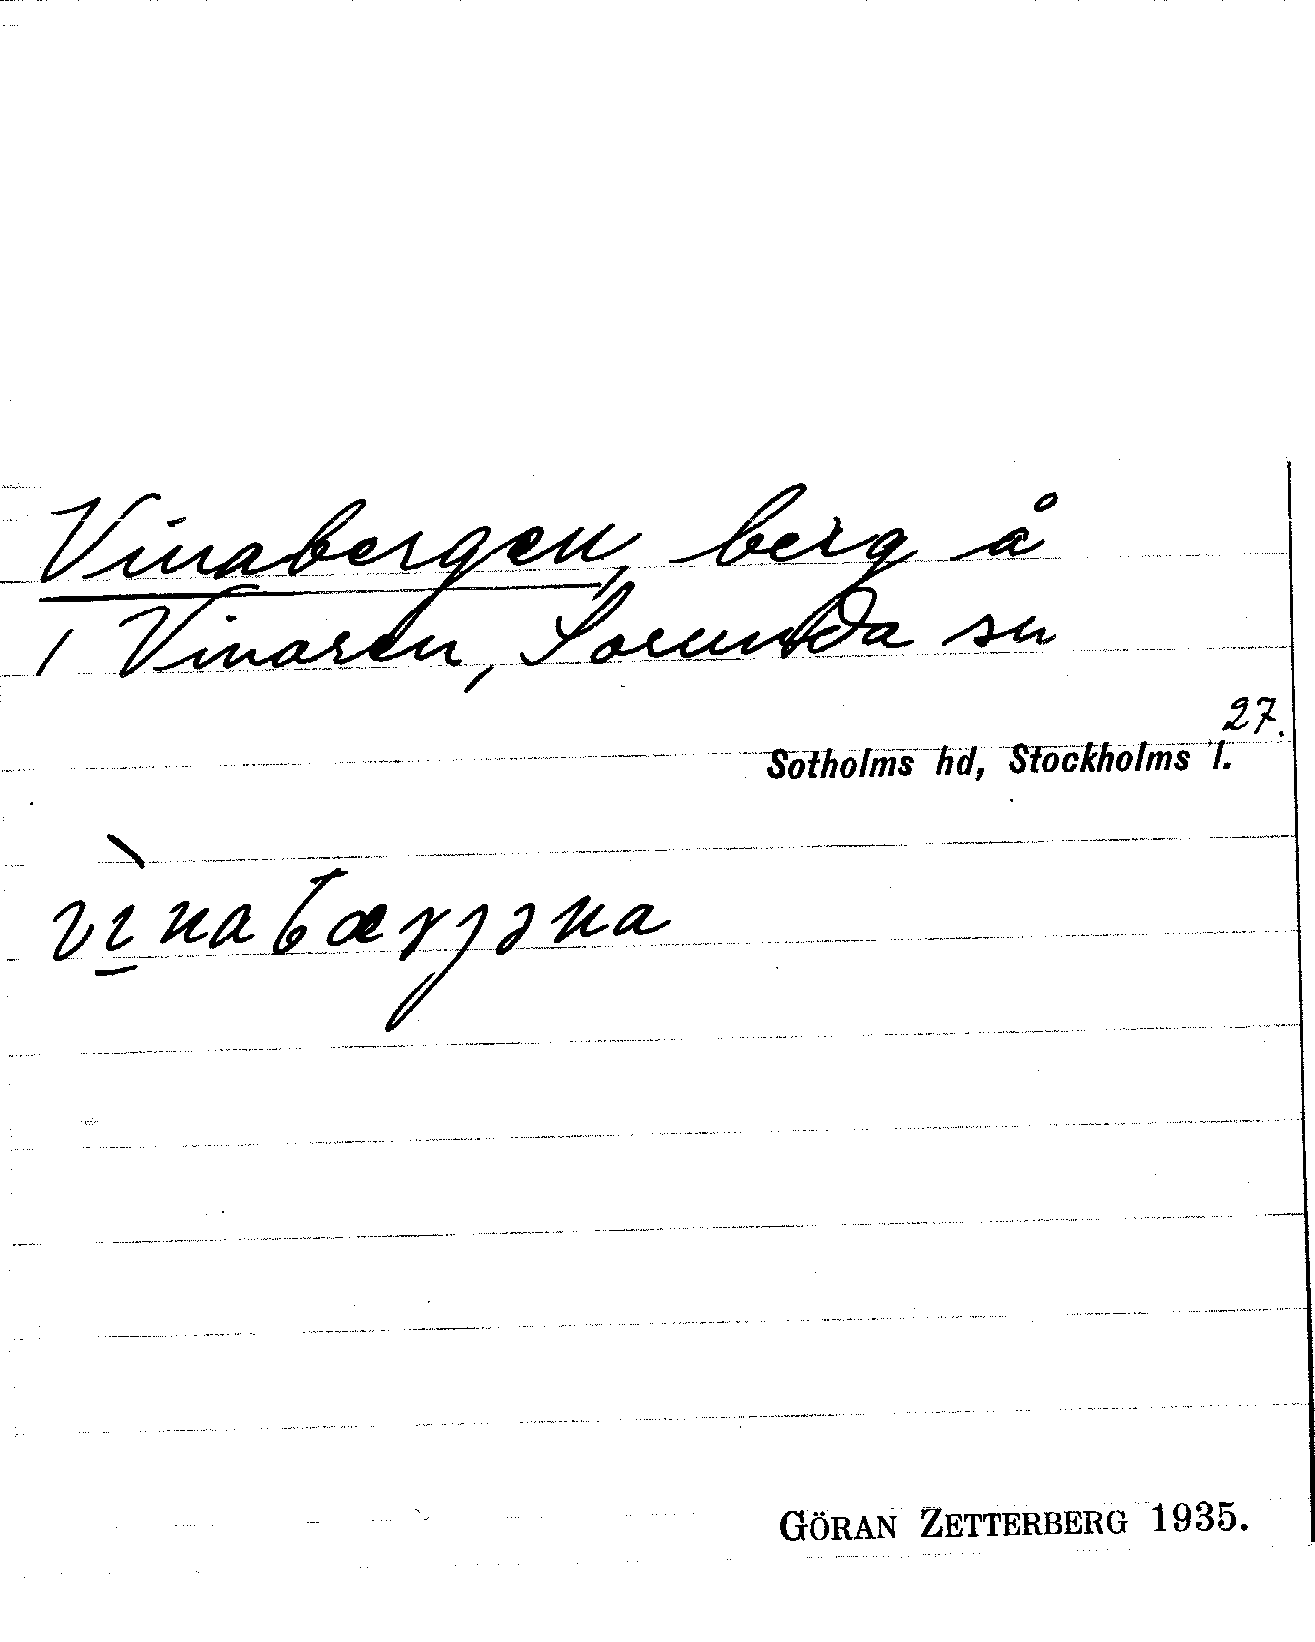 Vinabergen, berg å
/ Vinaren, Sorunda sn
27.
Sotholms hd, Stockholms l.
vìnabærjəna
GÖRAN ZETTERBERG 1935.